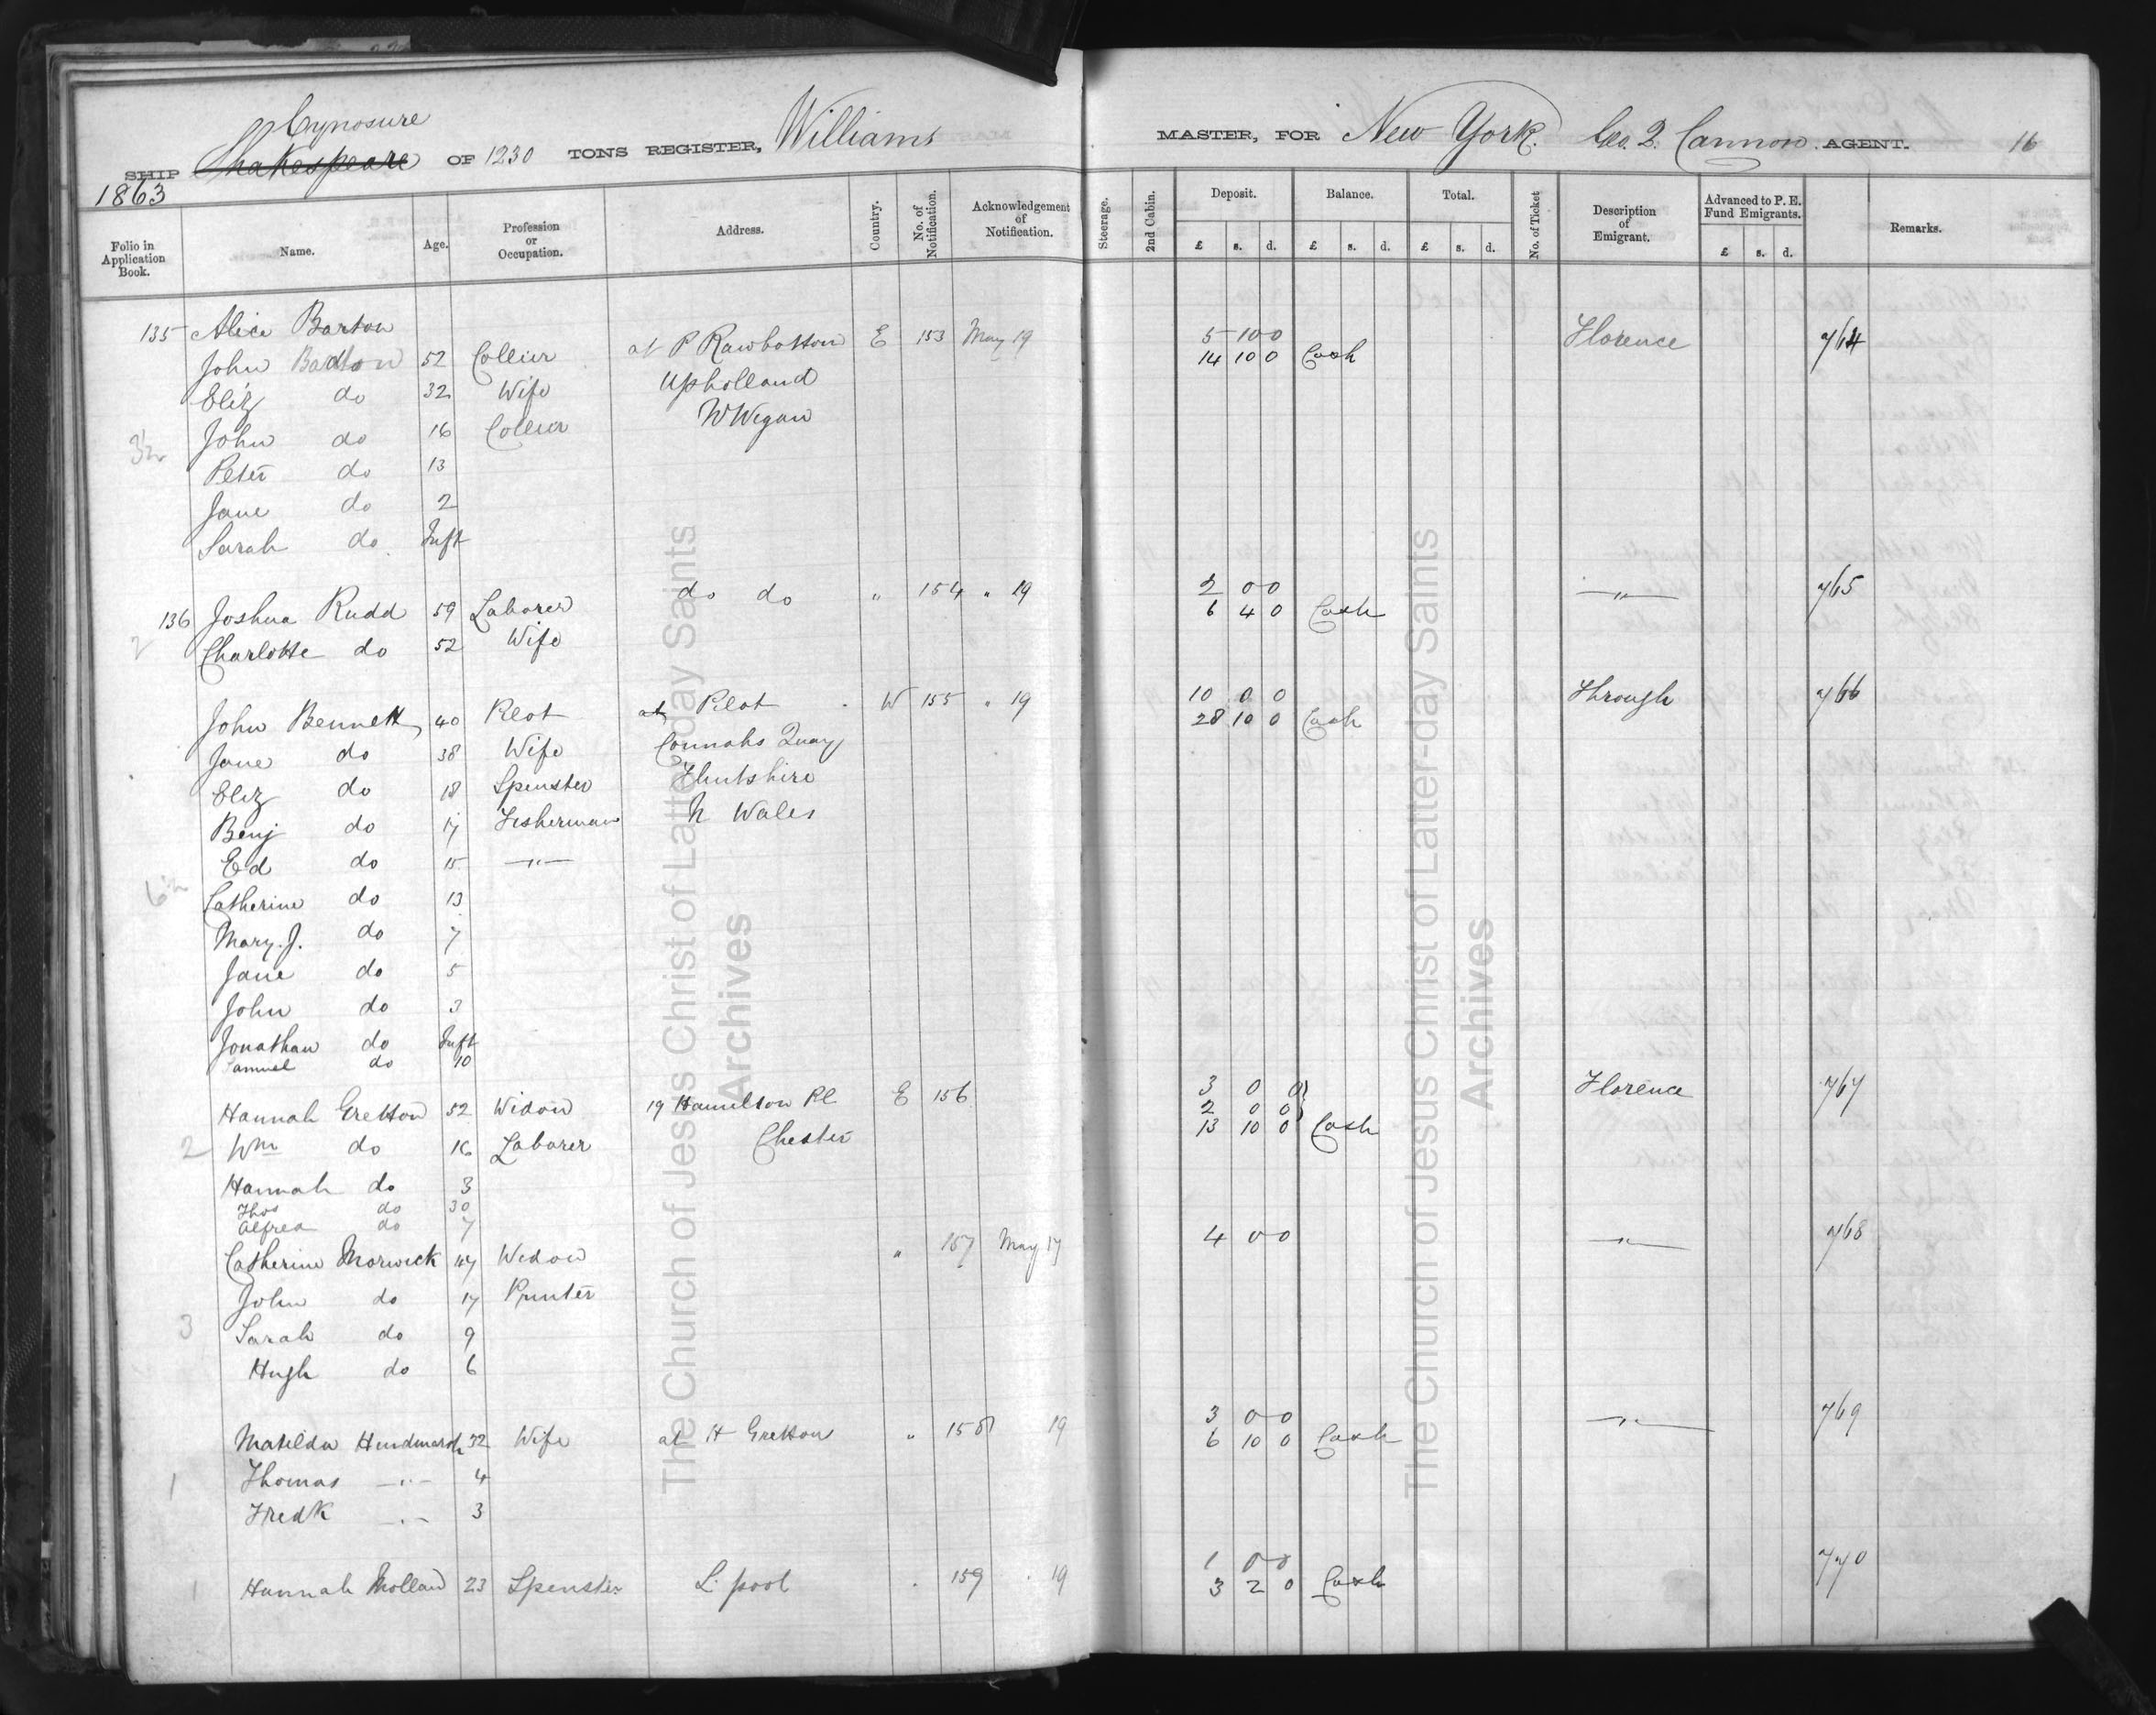 Cynosure
SHIP Shakespeare OF 1230 TONS REGISTER, Williams MASTER, FOR New York. Geo. Q. Cannon AGENT. 16
1863
Folio in Application Book. Name. Age. Profession or Occupation. Address. Country. No. of Notification. Acknowledgement of Notification. Steerage. 2nd Cabin. Deposit. Balance. Total. No. of Ticket Description of Emigrant. Advanced to P. E. Fund Emigrants. Remarks.
£ s. d. £ s. d. £ s. d. £ s. d.
135 Alice Barton
John Barton 52 Collier at P Rawbottom E 153 May 19 5 10 0 Florence 764
14 10 0 Cash
Eliz do 32 Wife Upholland
John do 16 Collier N Wigan
3½
Peter do 13
Jane do 2
Sarah do Inft
136 Joshua Rudd 59 Laborer do do " 154 " 19 2 0 0 —"— 765
6 4 0 Cash
2 Charlotte do 52 Wife
John Bennett 40 Pilot at Pilot W 155 " 19 10 0 0 Through 766
28 10 0 Cash
Jane do 38 Wife Connahs Quay
Eliz do 18 Spinster Flintshire
Benj do 17 Fisherman N Wales
Ed do 15 —"—
6½ Catherine do 13
Mary. J. do 7
Jane do 5
John do 3
Jonathan do Inft
Samuel do 10
Hannah Gretton 52 Widow 19 Hamilton Pl E 156 3 0 0 Florence 767
2 0 0
13 10 0 Cash
2 Wm do 16 Laborer Chester
Hannah do 3
Thos do 30
Alfred do 7
Catherine Morwick 47 Widow " 157 May 17 4 0 0 —"— 768
John do 17 Printer
3 Sarah do 9
Hugh do 6
Matilda Hindmarsh 32 Wife at H Gretton " 158 19 3 0 0 —"— 769
6 10 0 Cash
1 Thomas —"— 4
Fredk —"— 3
1 Hannah Mollan 23 Spinster L. pool 159 " 19 1 0 0 770
3 2 0 Cash
The Church of Jesus Christ of Latter-day Saints
Archives
The Church of Jesus Christ of Latter-day Saints
Archives